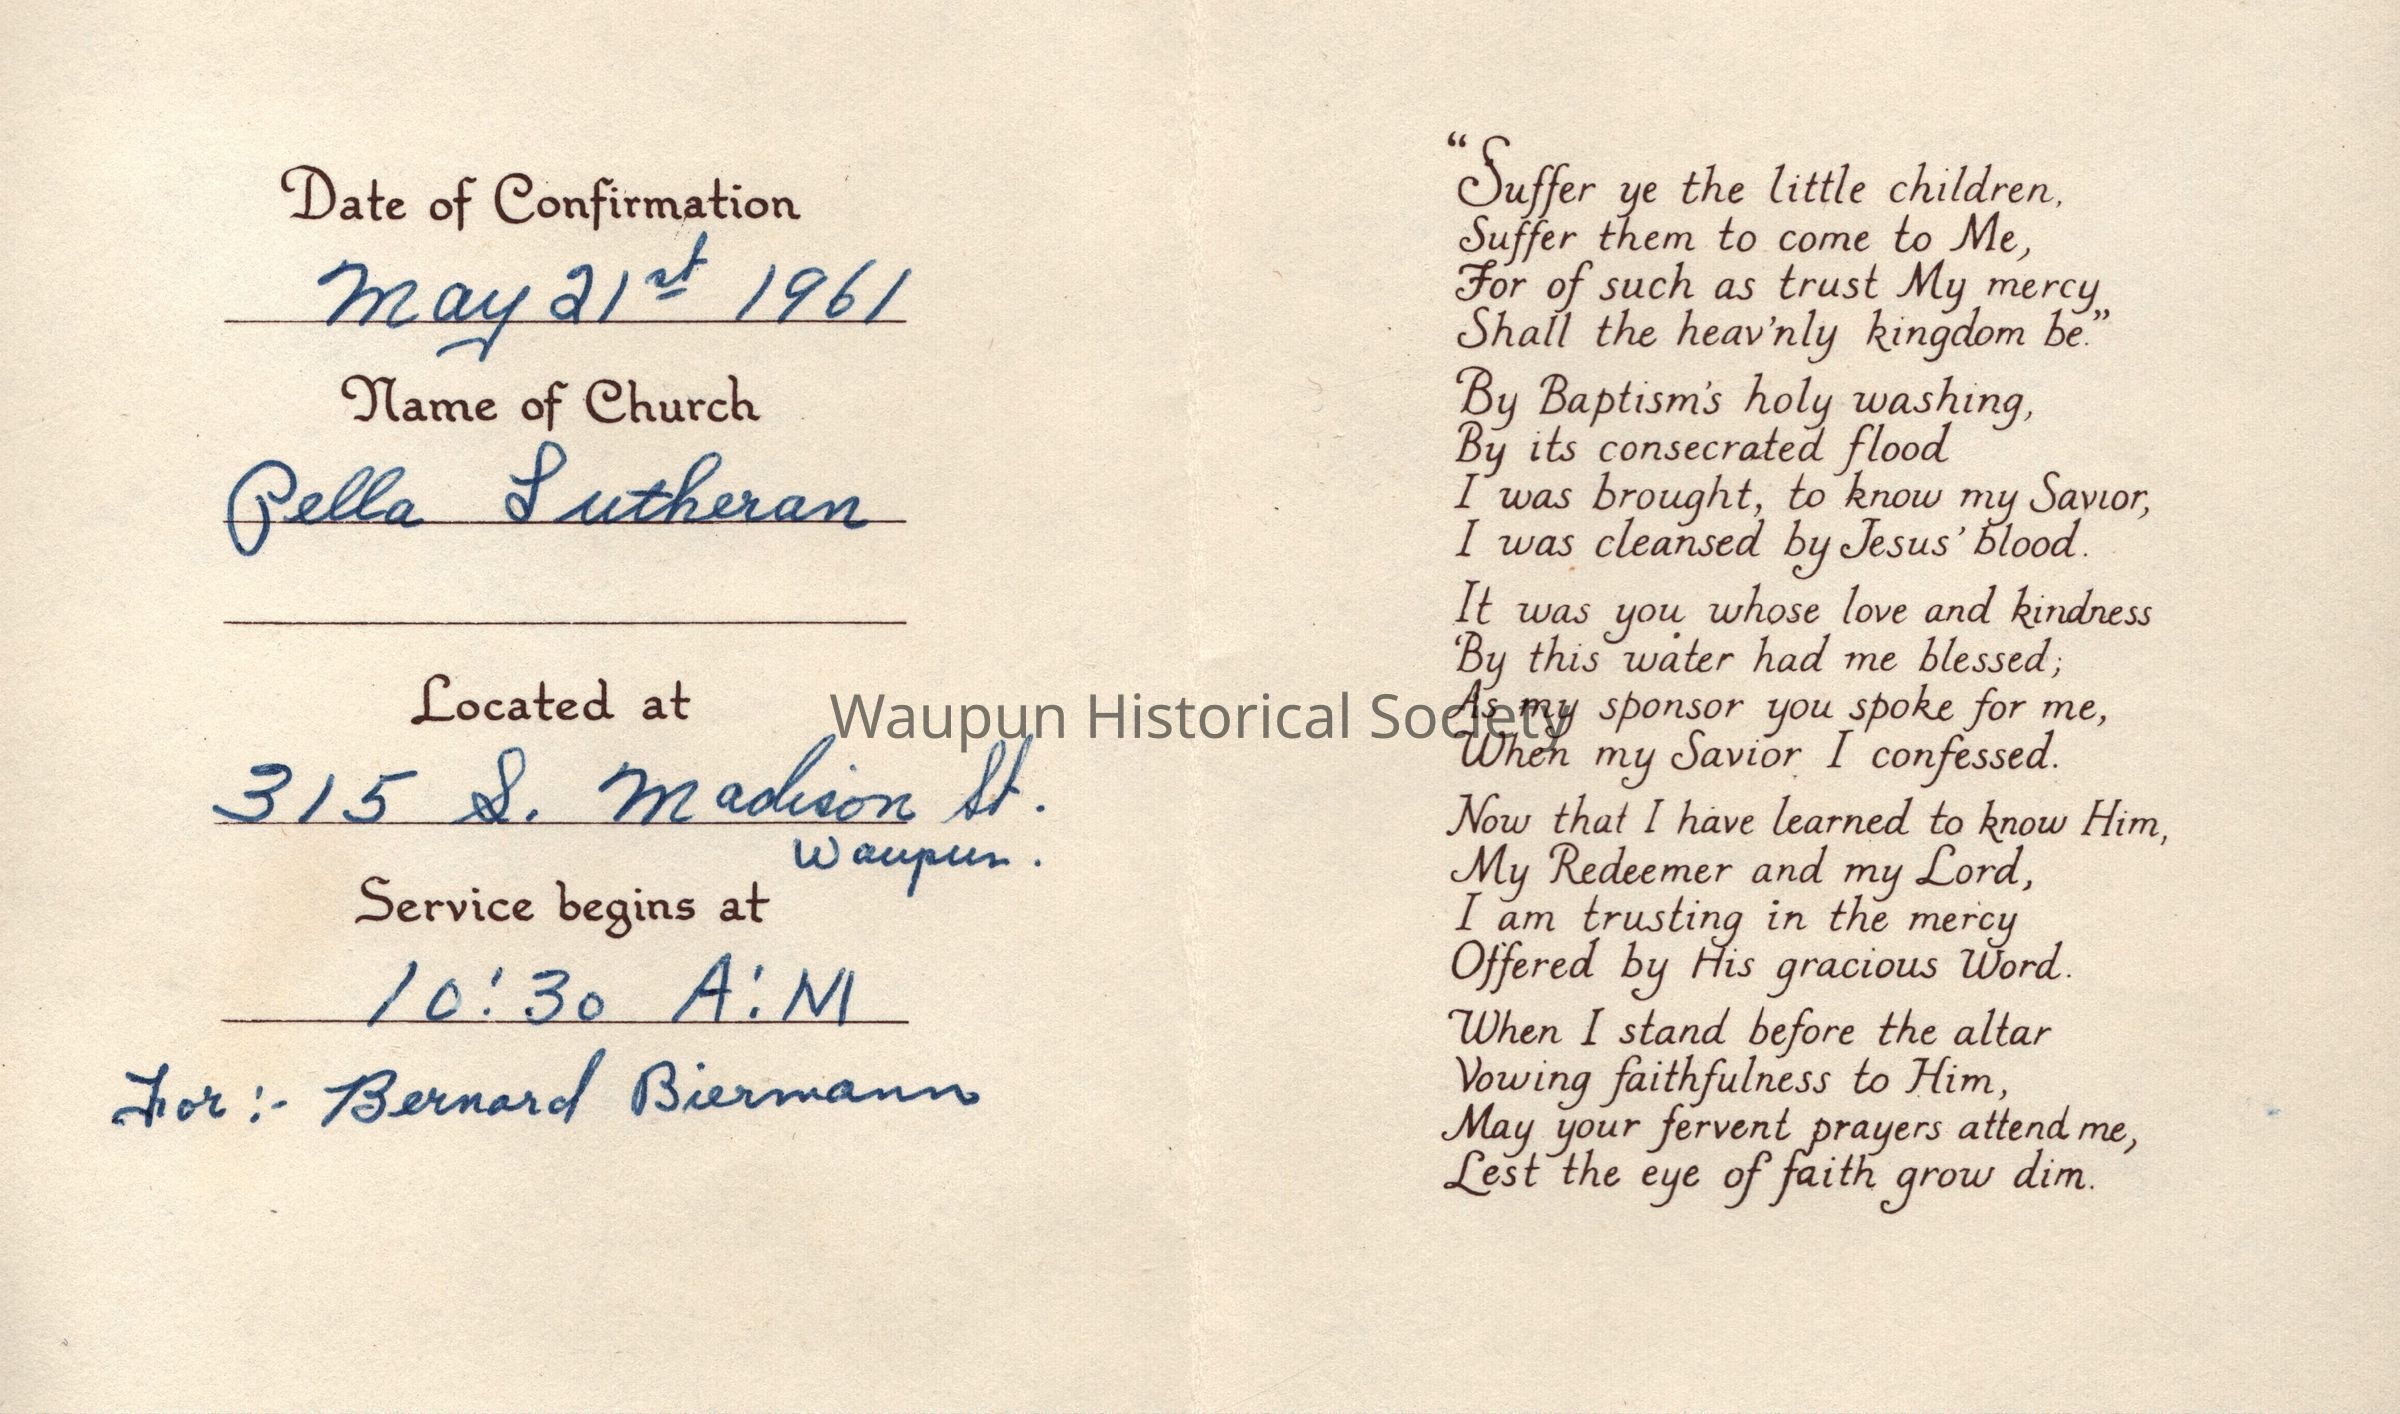 Date of Confirmation
May 21st 1961
Name of Church
Pella Lutheran
Located at
315 S. Madison St.
Waupun.
Service begins at
10:30 A:M
For:- Bernard Biermann
"Suffer ye the little children,
Suffer them to come to Me,
For of such as trust My mercy
Shall the heav'nly kingdom be."
By Baptism's holy washing,
By its consecrated flood
I was brought, to know my Savior,
I was cleansed by Jesus' blood.
It was you whose love and kindness
By this water had me blessed;
As my sponsor you spoke for me,
When my Savior I confessed.
Now that I have learned to know Him,
My Redeemer and my Lord,
I am trusting in the mercy
Offered by His gracious Word.
When I stand before the altar
Vowing faithfulness to Him,
May your fervent prayers attend me,
Lest the eye of faith grow dim.
Waupun Historical Society